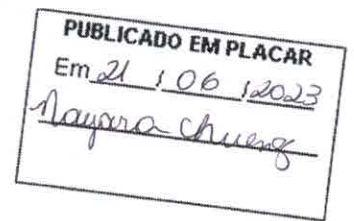 PUBLICADO EM PLACAR
Em 21 / 06 / 2023
Nayara Chueng